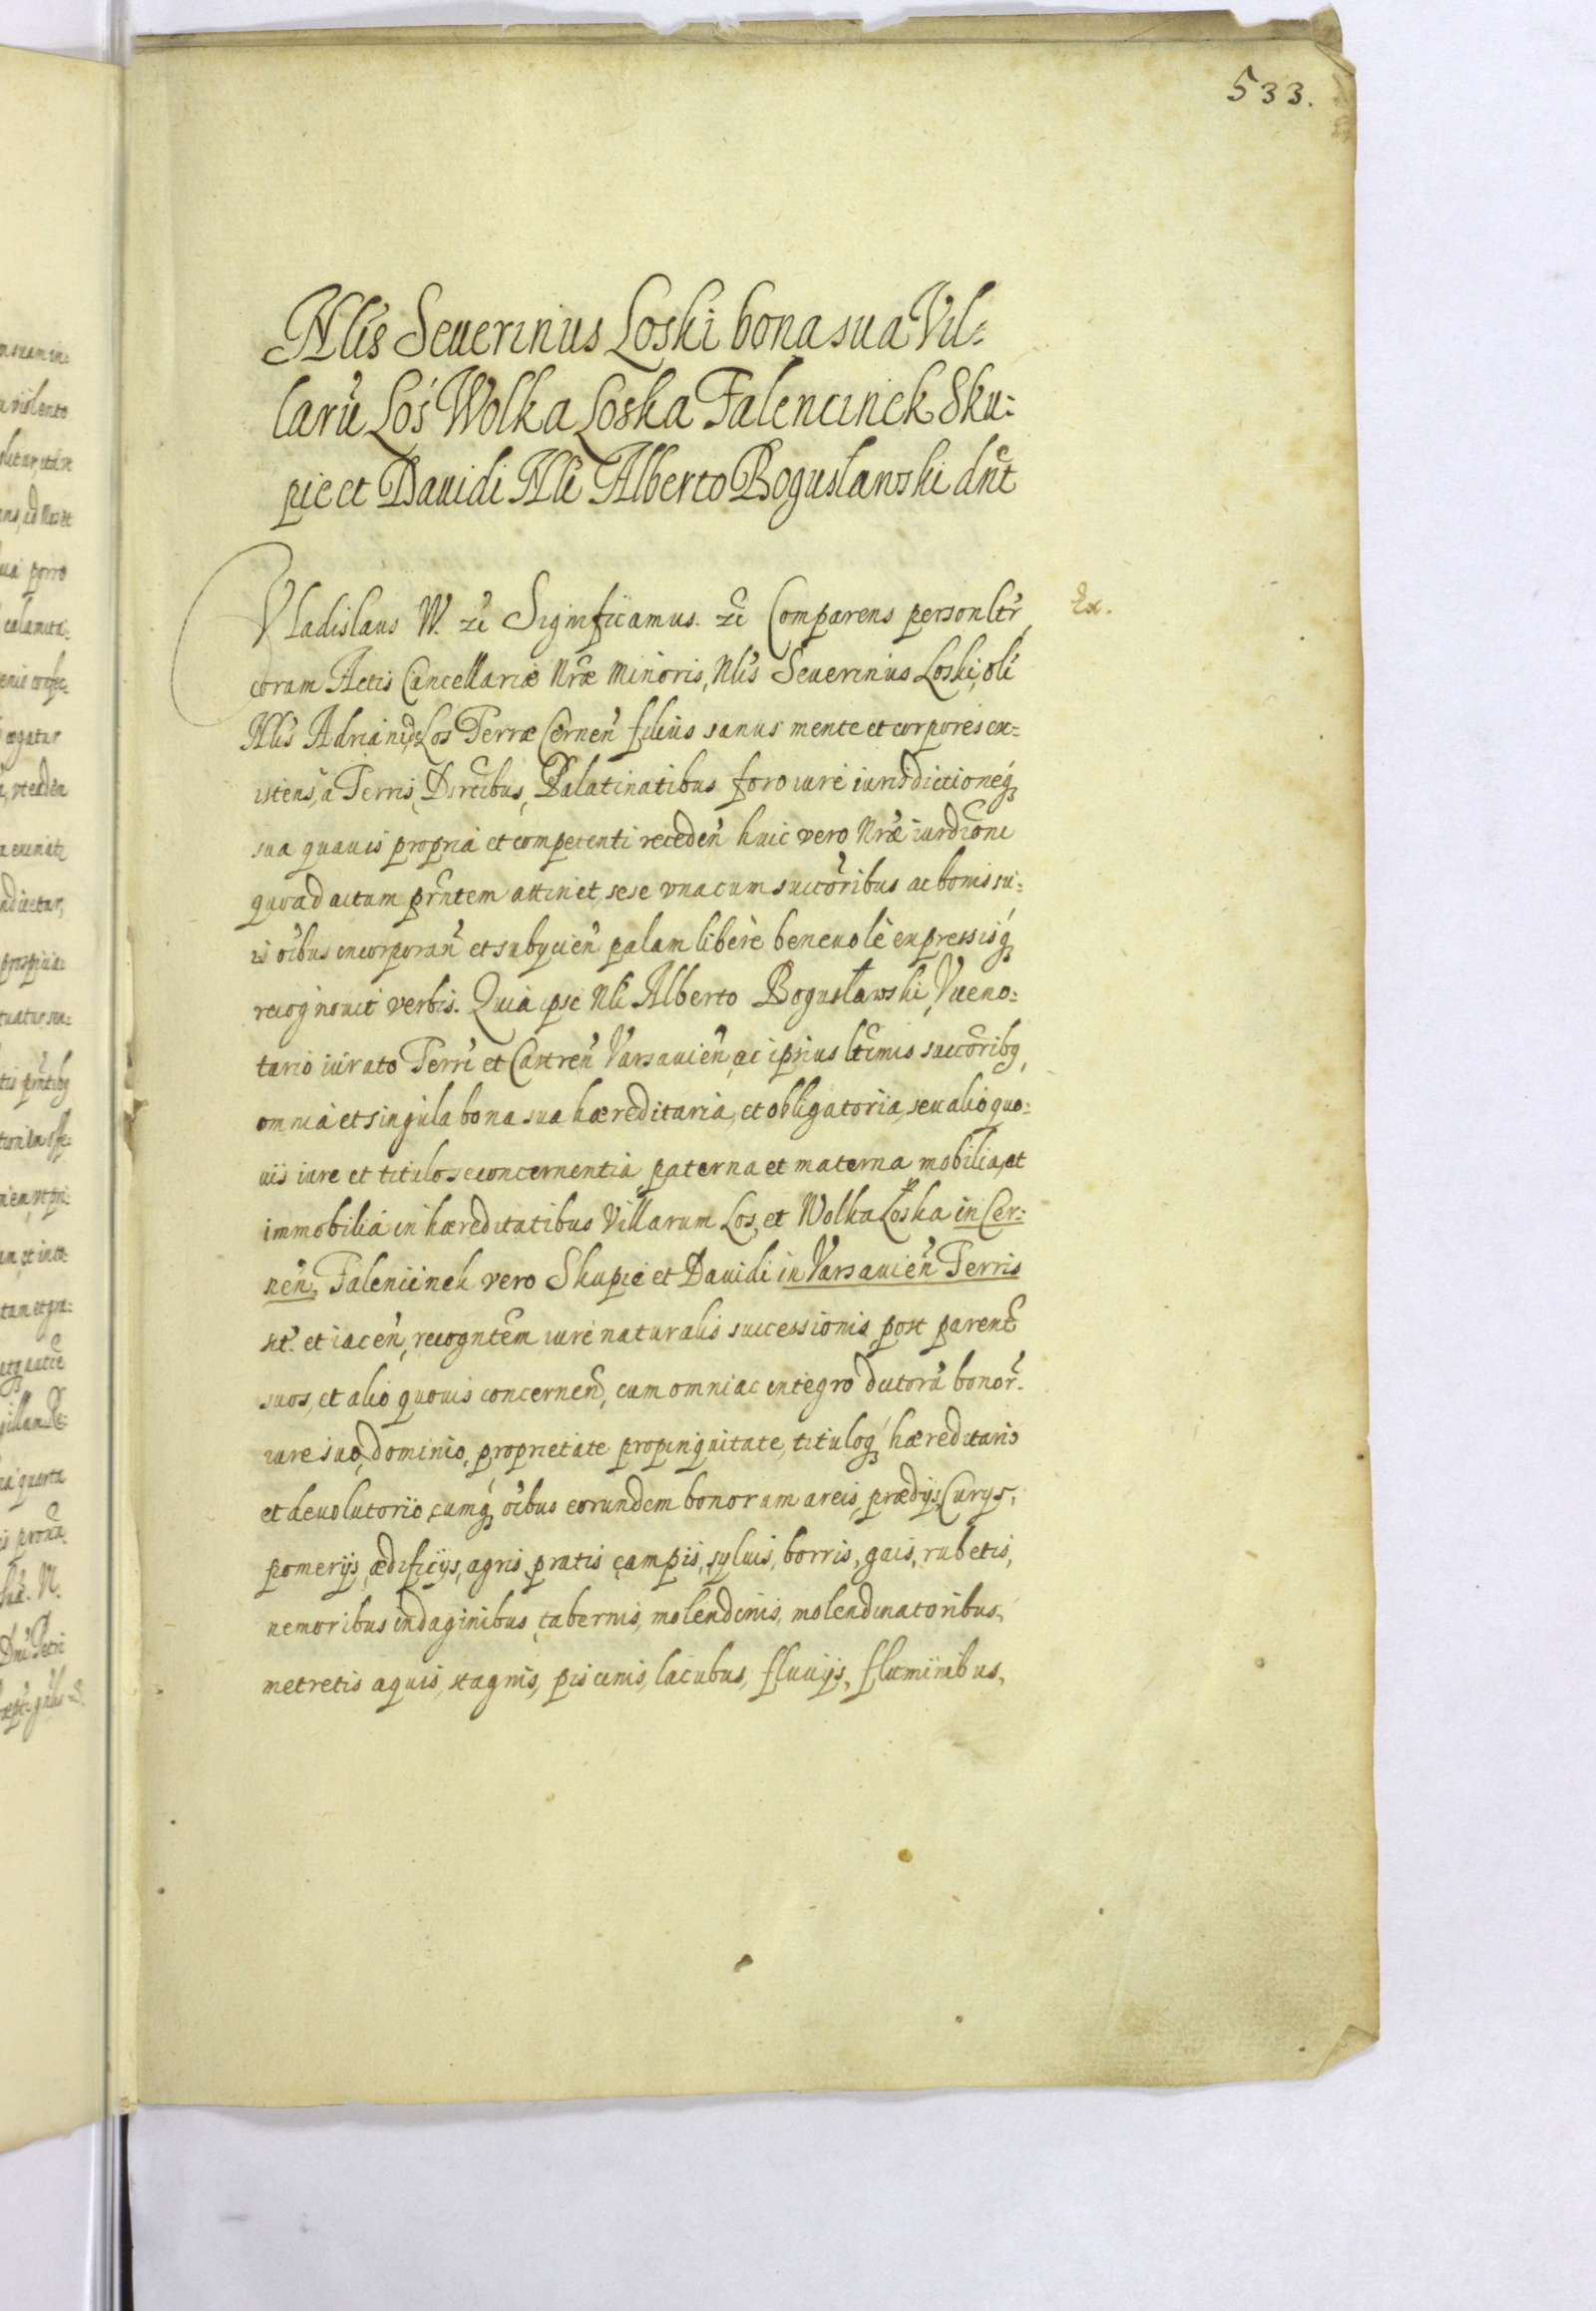 533.
Nlis Seuerinus Loski bona sua Vil=
larũ Loś Wolka Loska Falencinek Sku=
pie et Dauidi Nli Alberto Boguslawski dnt
Vladislaus W. etc Significamus. etc Comparens personltr
Ex.
coram Actis Cancellariæ Nræ Minoris, Nlis Seuerinus Loski, oli
Nlis Adriani de Los Terræ Cernen̄ filius sanus mente et corpore ex=
istens, a Terris, Dirctibus, Palatinatibus foro iure iurisdictioneq3
sua quauis propria et competenti receden̄ huic vero Nræ iurdioni
quoad actum prntem attinet, sese vna cum succoribus ac bonis su=
is oibus incorporan̄ et subijcien̄ palam libere beneuole expressisq3
recognouit verbis. Quia ipse Nli Alberto Bogusławski, Viceno=
tario iurato Terri et Castren̄ Varsauien̄, ac ipsius ltimis succoribq3,
omnia et singula bona sua hæreditaria, et obligatoria, seu alio quo=
uis iure et titulo se concernentia, paterna et materna, mobilia, et
immobilia in hæreditatibus Villarum Los, et Wolka Łoska in Cer=
nen̄, Falenicinek vero Skupie et Dauidi in Varsauien̄ Terris
sit. et iacen̄, recogntem iure naturalis successionis post parent
suos, et alio quouis concernen̄, cum omni ac integro dictorũ bonor.
iure suo, dominio, proprietate propinquitate, tituloq3 hæreditario
et deuolutorio, cumq3 oibus eorundem bonorum areis, prædijs, Curijs,
pomerijs, ædificijs, agris, pratis campis, syluis, borris, gais, rubetis,
nemoribus indaginibus, tabernis, molendinis, molendinatoribus,
metretis aquis, stagnis, piscinis, lacubus, fluuijs, fluminibus,